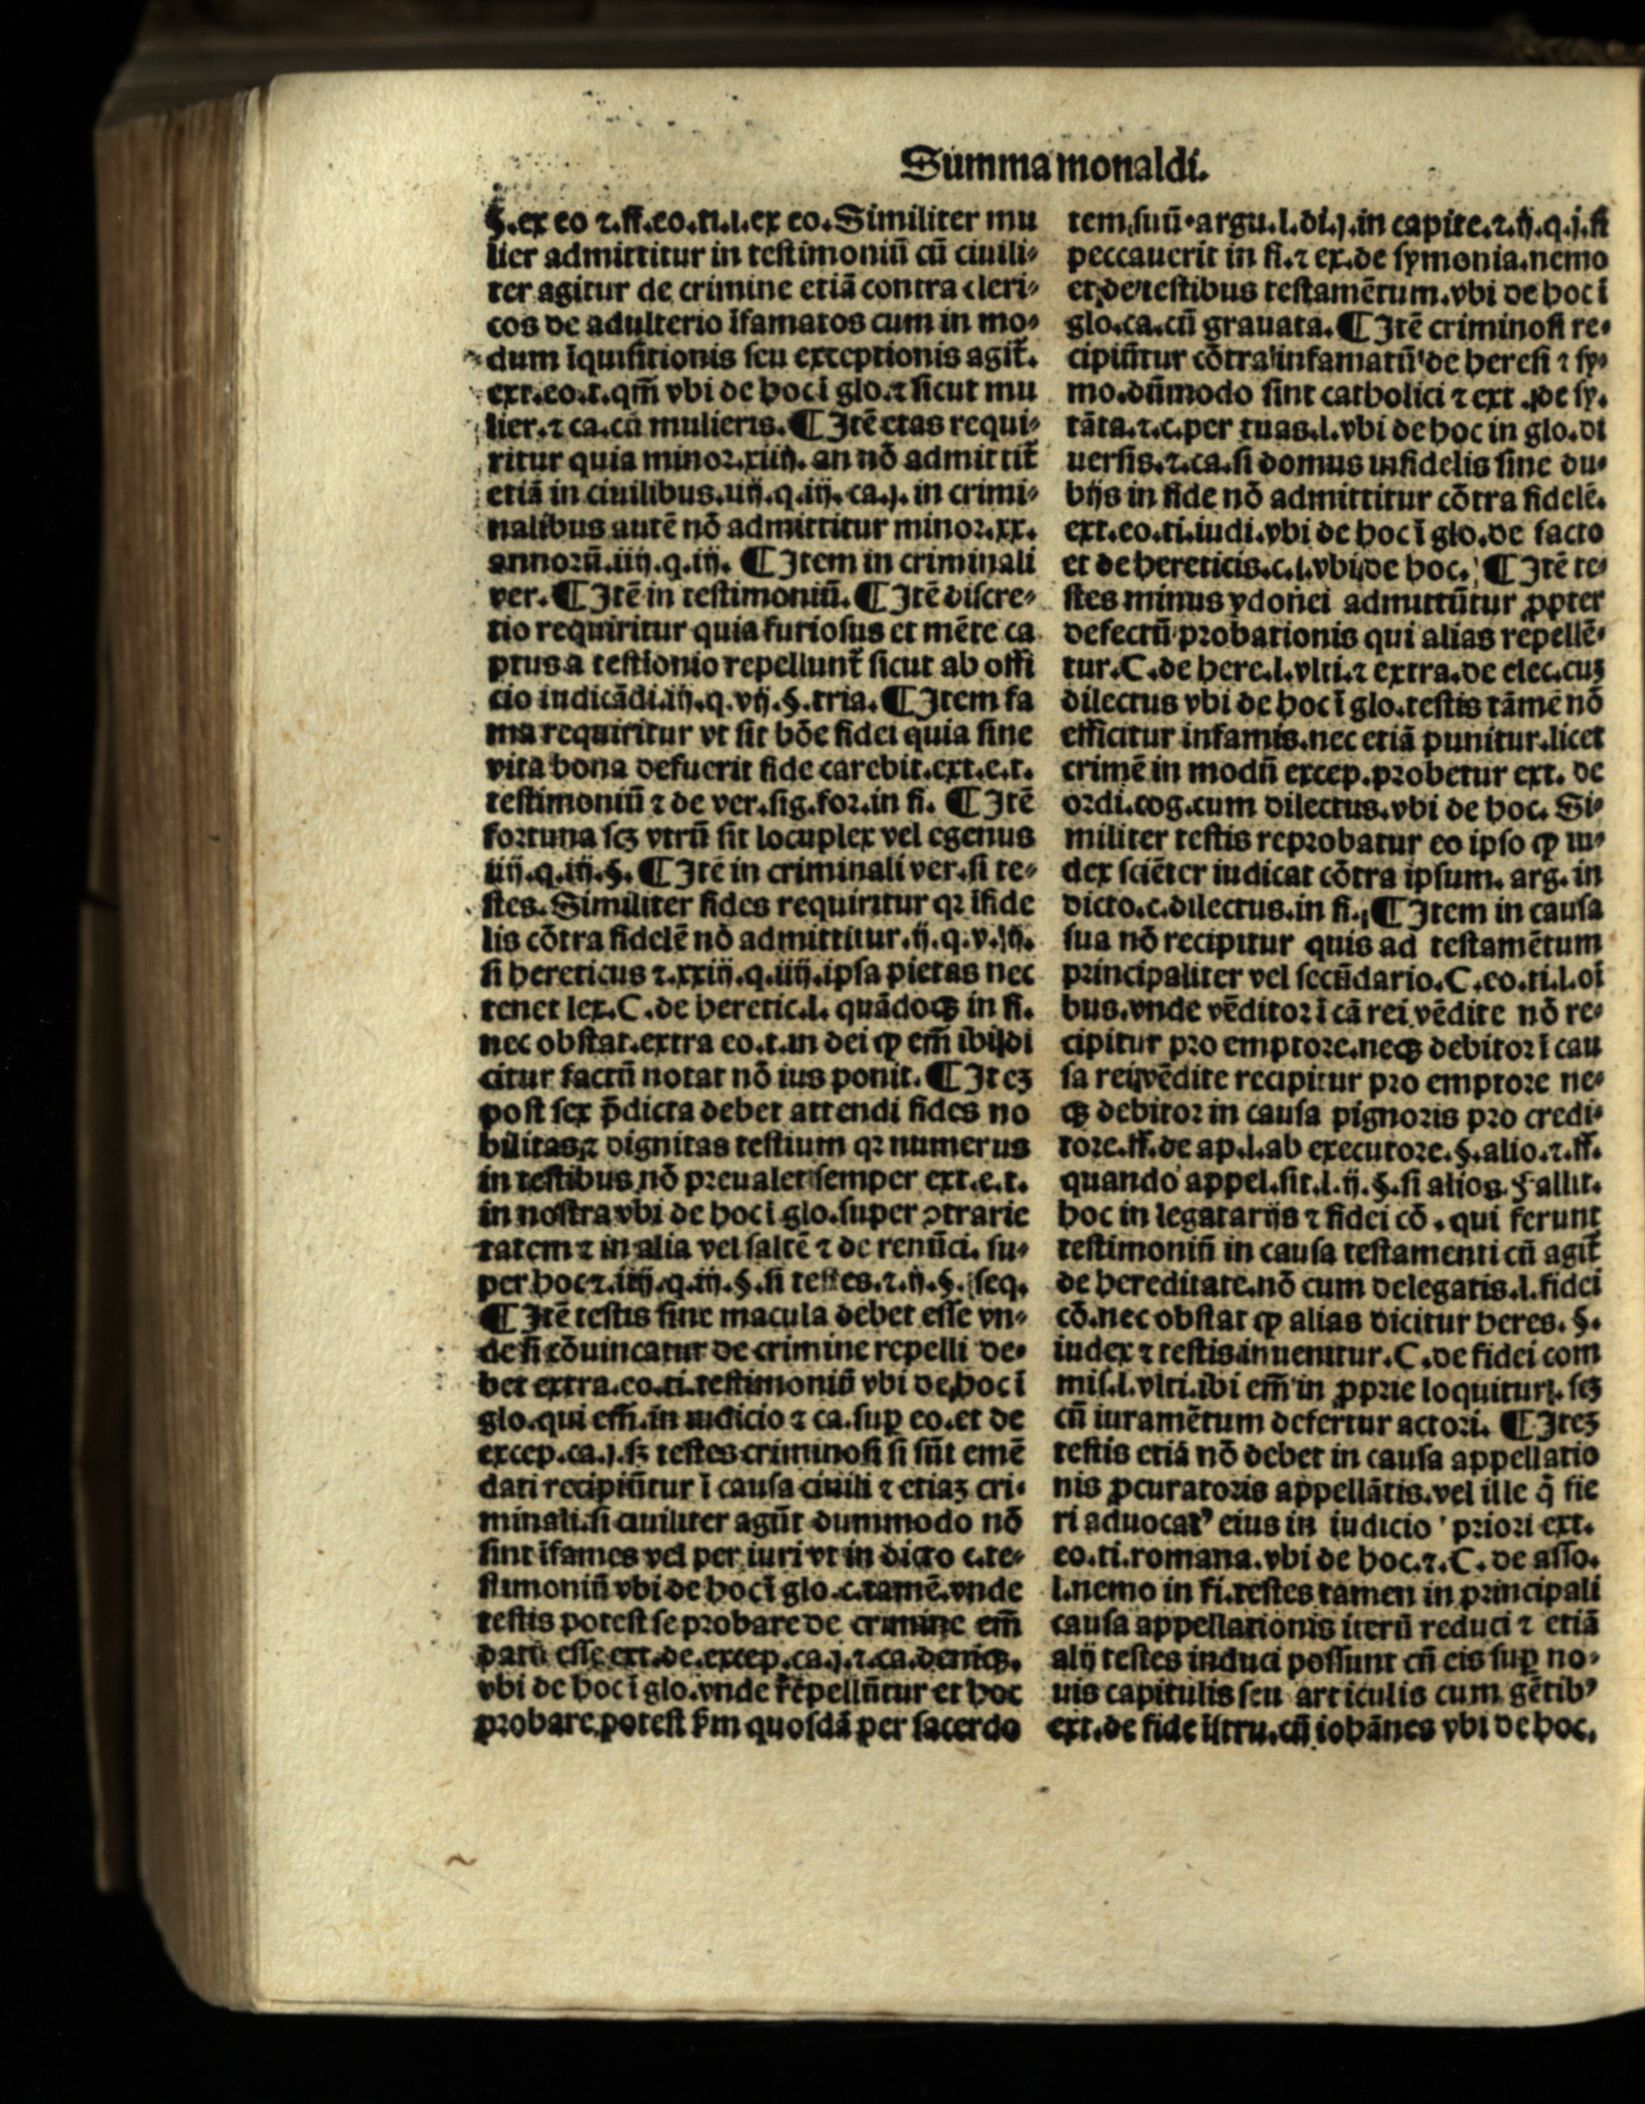 Summa monaldi.
§.ex eo ⁊.ff.eo.ti.l.ex eo.Similiter mu
lier admittitur in testimoniū cū ciuili⸗
ter agitur de crimine etiā contra cleri⸗
cos de adulterio īfamatos cum in mo⸗
dum īquisitionis seu exceptionis agit᷑.
ext.eo.t.qm̄ vbi de hoc ī glo.⁊ sicut mu
lier.⁊ ca.cū mulieris.¶Itē etas requi⸗
ritur quia minor.xiiij. an nō admittit᷑
etiā in ciuilibus.iiij.q.iij. ca.j. in crimi⸗
nalibus autē nō admittitur minor.xx.
annorū.iiij.q.iij. ¶Item in criminali
ver.¶Itē in testimoniū.¶Itē discre⸗
tio requiritur quia furiosus et mēte ca
ptus a testionio repellunt᷑ sicut ab offi
cio iudicādi.iij.q.vij.§.tria.¶Item fa
ma requiritur vt sit bōe fidei quia sine
vita bona defuerit fide carebit.ext.e.t.
testimoniū ⁊ de ver.sig.for.in fi. ¶Itē
fortuna scꝫ vtrū sit locuplex vel egenus
iiij.q.iij.§.¶Itē in criminali ver.si te⸗
stes.Similiter fides requiritur qꝛ īfide
lis cōtra fidelē nō admittitur.ij.q.v.ij.
si hereticus ⁊.xxiij.q.iiij.ipsa pietas nec
tenet lex.C.de heretic.l. quādoqꝫ in fi.
nec obstat.extra eo.t.in dei ꝙ em̄ ibi di
citur factū notat nō ius ponit.¶Iteꝫ
post sex p̄dicta debet attendi fides no
bilitas ⁊ dignitas testium qꝛ numerus
in testibus nō preualet semper ext.e.t.
in nostra vbi de hoc ī glo.super ꝯtrarie
tatem ⁊ in alia vel saltē ⁊ de renūci. su⸗
per hoc ⁊.iiij.q.iij.§.si testes.⁊.ij.§. seq.
¶Itē testis sine macula debet esse vn⸗
de si cōuincatur de crimine repelli de⸗
bet extra.eo.ti.testimoniū vbi de hoc ī
glo.qui em̄.in iudicio ⁊ ca.suꝑ eo.et de
excep.ca.j.sꝫ testes criminosi si sūt emē
dati recipiūtur ī causa ciuili ⁊ etiaꝫ cri⸗
minali.si ciuiliter agūt dummodo nō
sint īfames vel per iuri vt in dicto c.te⸗
stimoniū vbi de hoc ī glo.c.tamē.vnde
testis potest se probare de crimine em̄
datū esse ext.de.excep.ca.j.⁊.ca.deniqꝫ.
vbi de hoc ī glo.vnde repellūtur et hoc
probare potest ẜm quosdā per sacerdo
tem suū.argu.l.di.j.in capite.⁊.ij.q.j.si
peccauerit in fi.⁊ ex.de symonia.nemo
et de testibus testamētum.vbi de hoc ī
glo.ca.cū grauata.¶Itē criminosi re⸗
cipiūtur cōtra infamatū de heresi ⁊ sy⸗
mo.dūmodo sint catholici ⁊ ext .de sy.
tāta.⁊.c.per tuas.l.vbi de hoc in glo.di
uersis.⁊.ca.si domus infidelis sine du⸗
bijs in fide nō admittitur cōtra fidelē.
ext.eo.ti.iudi.vbi de hoc ī glo.de facto
et de hereticis.c.l.vbi de hoc. ¶Itē te⸗
stes minus ydonei admittūtur ꝓpter
defectū probationis qui alias repellē⸗
tur.C.de here.l.vlti.⁊ extra.de elec.cuꝫ
dilectus vbi de hoc ī glo.testis tāmē nō
efficitur infamis.nec etiā punitur.licet
crimē in modū excep.probetur ext. de
ordi.cog.cum dilectus.vbi de hoc. Si⸗
militer testis reprobatur eo ipso ꝙ iu⸗
dex sciēter iudicat cōtra ipsum. arg.in
dicto.c.dilectus.in fi. ¶Item in causa
sua nō recipitur quis ad testamētum
principaliter vel secūdario.C.eo.ti.l.oī
bus.vnde vēditor ī cā rei vēdite nō re⸗
cipitur pro emptore.neqꝫ debitor ī cau
sa rei vēdite recipitur pro emptore ne⸗
qꝫ debitor in causa pignoris pro credi⸗
tore.ff.de ap.l.ab executore.§.alio.⁊.ff.
quando appel.sit.l.ij.§.si alios.Fallit.
hoc in legatarijs ⁊ fidei cō.qui ferunt
testimoniū in causa testamenti cū agit᷑
de hereditate.nō cum delegatis.l.fidei
cō.nec obstat ꝙ alias dicitur heres. §.
iudex ⁊ testis inuenitur.C.de fidei com
mis.l.vlti.ibi em̄ in ꝓprie loquitur. scꝫ
cū iuramētum defertur actori. ¶Iteꝫ
testis etiā nō debet in causa appellatio
nis ꝓcuratoris appellātis.vel ille q̄ fie
ri aduocatꝰ eius in iudicio priori ext.
eo.ti.romana.vbi de hoc.⁊.C. de asso.
l.nemo in fi.testes tamen in principali
causa appellationis iterū reduci ⁊ etiā
alij testes induci possunt cū eis suꝑ no⸗
uis capitulis seu articulis cum gētibꝰ
ext.de fide īstru.cū iohānes vbi de hoc.